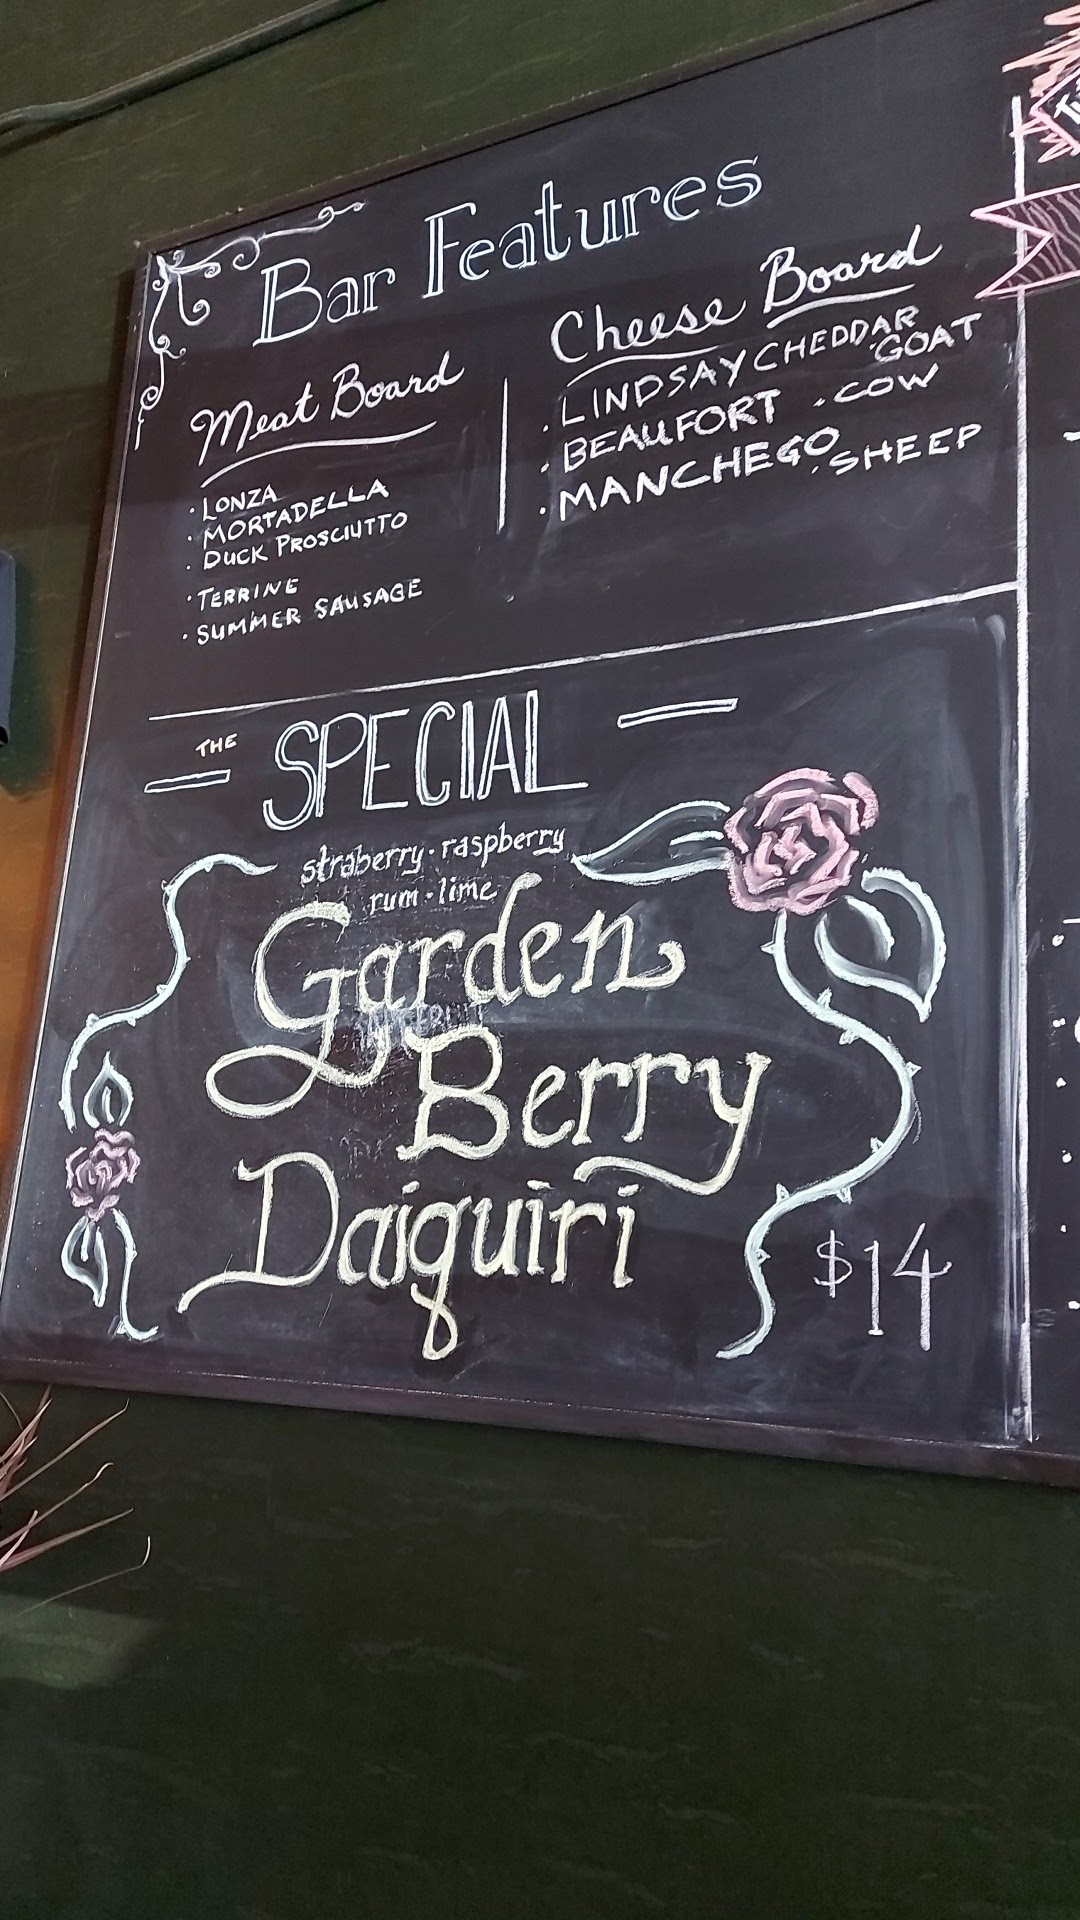 Bar Features
Meat Board
· LONZA
· MORTADELLA
· DUCK PROSCIUTTO
· TERRINE
· SUMMER SAUSAGE
Cheese Board
· LINDSAY CHEDDAR
· GOAT
· BEAUFORT · COW
· MANCHEGO
· SHEEP
THE SPECIAL
straberry · raspberry
rum · lime
Garden
Berry
Daiquiri
$14